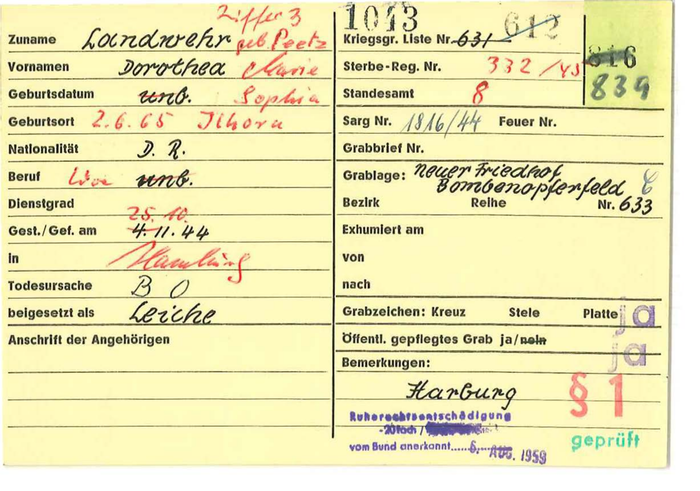 Ziffer 3
Zuname Landwehr geb. Peetz
Vornamen Dorothea Marie
Geburtsdatum unb. Sophia
Geburtsort 2.6.65 Ilhorn
Nationalität D. R.
Beruf Wwe unb.
Dienstgrad
25. 10.
Gest./Gef. am 4.11.44
in Hamburg
Todesursache B O
beigesetzt als Leiche
Anschrift der Angehörigen
1043 612
Kriegsgr. Liste Nr. 631
816
Sterbe-Reg. Nr. 332/45
839
Standesamt 8
Sarg Nr. 1816/44 Feuer Nr.
Grabbrief Nr.
Grablage: neuer Friedhof
Bombenopferfeld
Bezirk Reihe Nr. 633
Exhumiert am
von
nach
Grabzeichen: Kreuz Stele Platte ja
Öffentl. gepflegtes Grab ja/nein ja
Bemerkungen:
Harburg
§ 1
geprüft
Ruherechtsentschädigung
-20fach /
vom Bund anerkannt 6. AUG. 1959